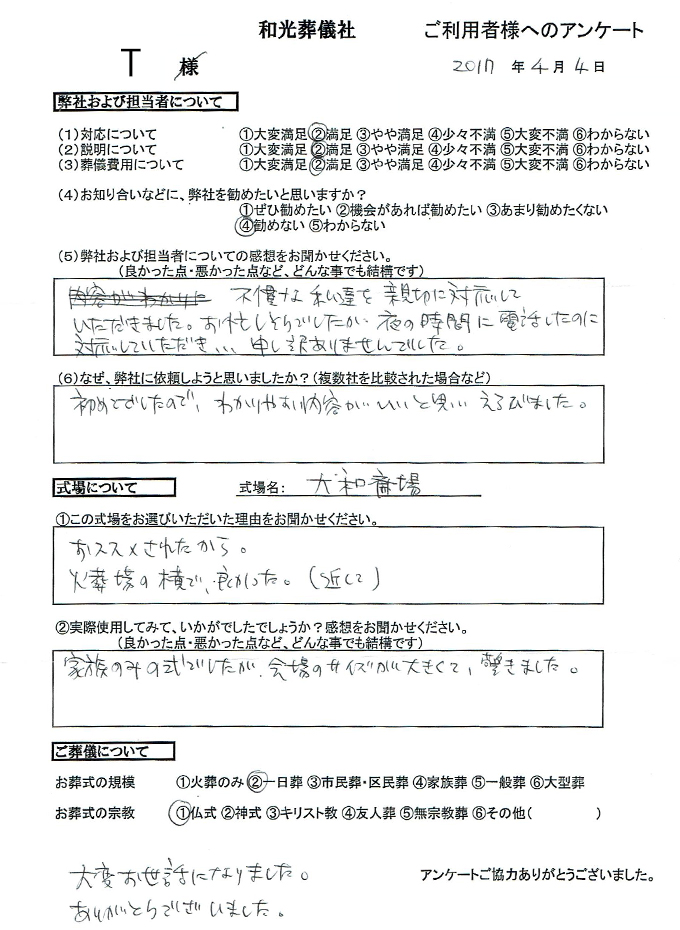 和光葬儀社 ご利用者様へのアンケート
T 様
2017 年 4 月 4 日
弊社および担当者について
(1)対応について ①大変満足 ②満足 ③やや満足 ④少々不満 ⑤大変不満 ⑥わからない
(2)説明について ①大変満足 ②満足 ③やや満足 ④少々不満 ⑤大変不満 ⑥わからない
(3)葬儀費用について ①大変満足 ②満足 ③やや満足 ④少々不満 ⑤大変不満 ⑥わからない
(4)お知り合いなどに、弊社を勧めたいと思いますか？
①ぜひ勧めたい ②機会があれば勧めたい ③あまり勧めたくない
④勧めない ⑤わからない
(5)弊社および担当者についての感想をお聞かせください。
(良かった点・悪かった点など、どんな事でも結構です)
内容がわかりに 不慣な私達を親切に対応して
いただきました。お忙しそうでしたが 夜の時間に電話したのに
対応していただき、、、申し訳ありませんでした。
(6)なぜ、弊社に依頼しようと思いましたか？(複数社を比較された場合など)
初めてでしたので、わかりやすい内容がいいと思い えらびました。
式場について 式場名： 大和斎場
①この式場をお選びいただいた理由をお聞かせください。
おススメされたから。
火葬場の横で、良かった。(近して)
②実際使用してみて、いかがでしたでしょうか？感想をお聞かせください。
(良かった点・悪かった点など、どんな事でも結構です)
家族のみの式でしたが、会場のサイズが大きくて、驚きました。
ご葬儀について
お葬式の規模 ①火葬のみ ②一日葬 ③市民葬・区民葬 ④家族葬 ⑤一般葬 ⑥大型葬
お葬式の宗教 ①仏式 ②神式 ③キリスト教 ④友人葬 ⑤無宗教葬 ⑥その他( )
大変お世話になりました。
ありがとうございました。
アンケートご協力ありがとうございました。